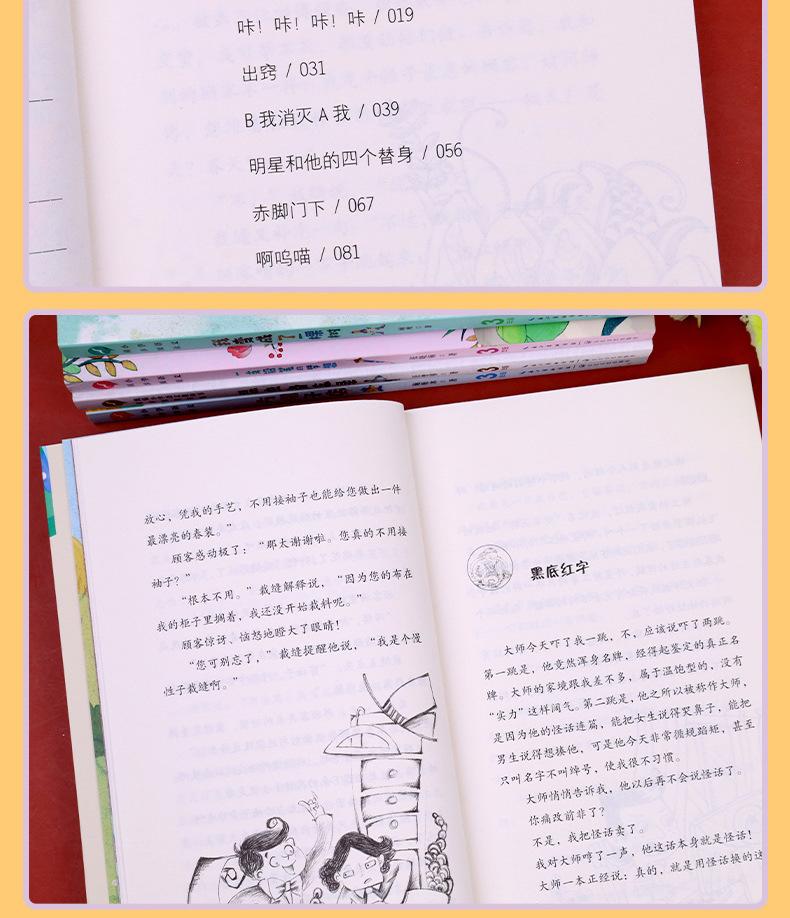 咔！咔！咔！咔 / 019
出窍 / 031
B 我消灭 A 我 / 039
明星和他的四个替身 / 056
赤脚门下 / 067
啊呜喵 / 081
放心，凭我的手艺，不用接袖子也能给您做出一件
最漂亮的春装。”
顾客感动极了：“那太谢谢啦。您真的不用接
袖子？”
“根本不用。”裁缝解释说，“因为您的布在
我的柜子里搁着，我还没开始裁料呢。”
顾客惊讶、恼怒地瞪大了眼睛！
“您可别忘了，”裁缝提醒他说，“我是个慢
性子裁缝啊。”
黑底红字
大师今天吓了我一跳，不，应该说吓了两跳。
第一跳是，他竟然浑身名牌，经得起鉴定的真正名
牌。大师的家境跟我差不多，属于温饱型的，没有
“实力”这样阔气。第二跳是，他之所以被称作大师，
是因为他的怪话连篇，能把女生说得哭鼻子，能把
男生说得想揍他，可是他今天非常循规蹈矩，甚至
只叫名字不叫绰号，使我很不习惯。
大师悄悄告诉我，他以后再不会说怪话了。
你痛改前非了？
不是，我把怪话卖了。
我对大师哼了一声，他这话本身就是怪话！
大师一本正经说：真的，就是用怪话换的这